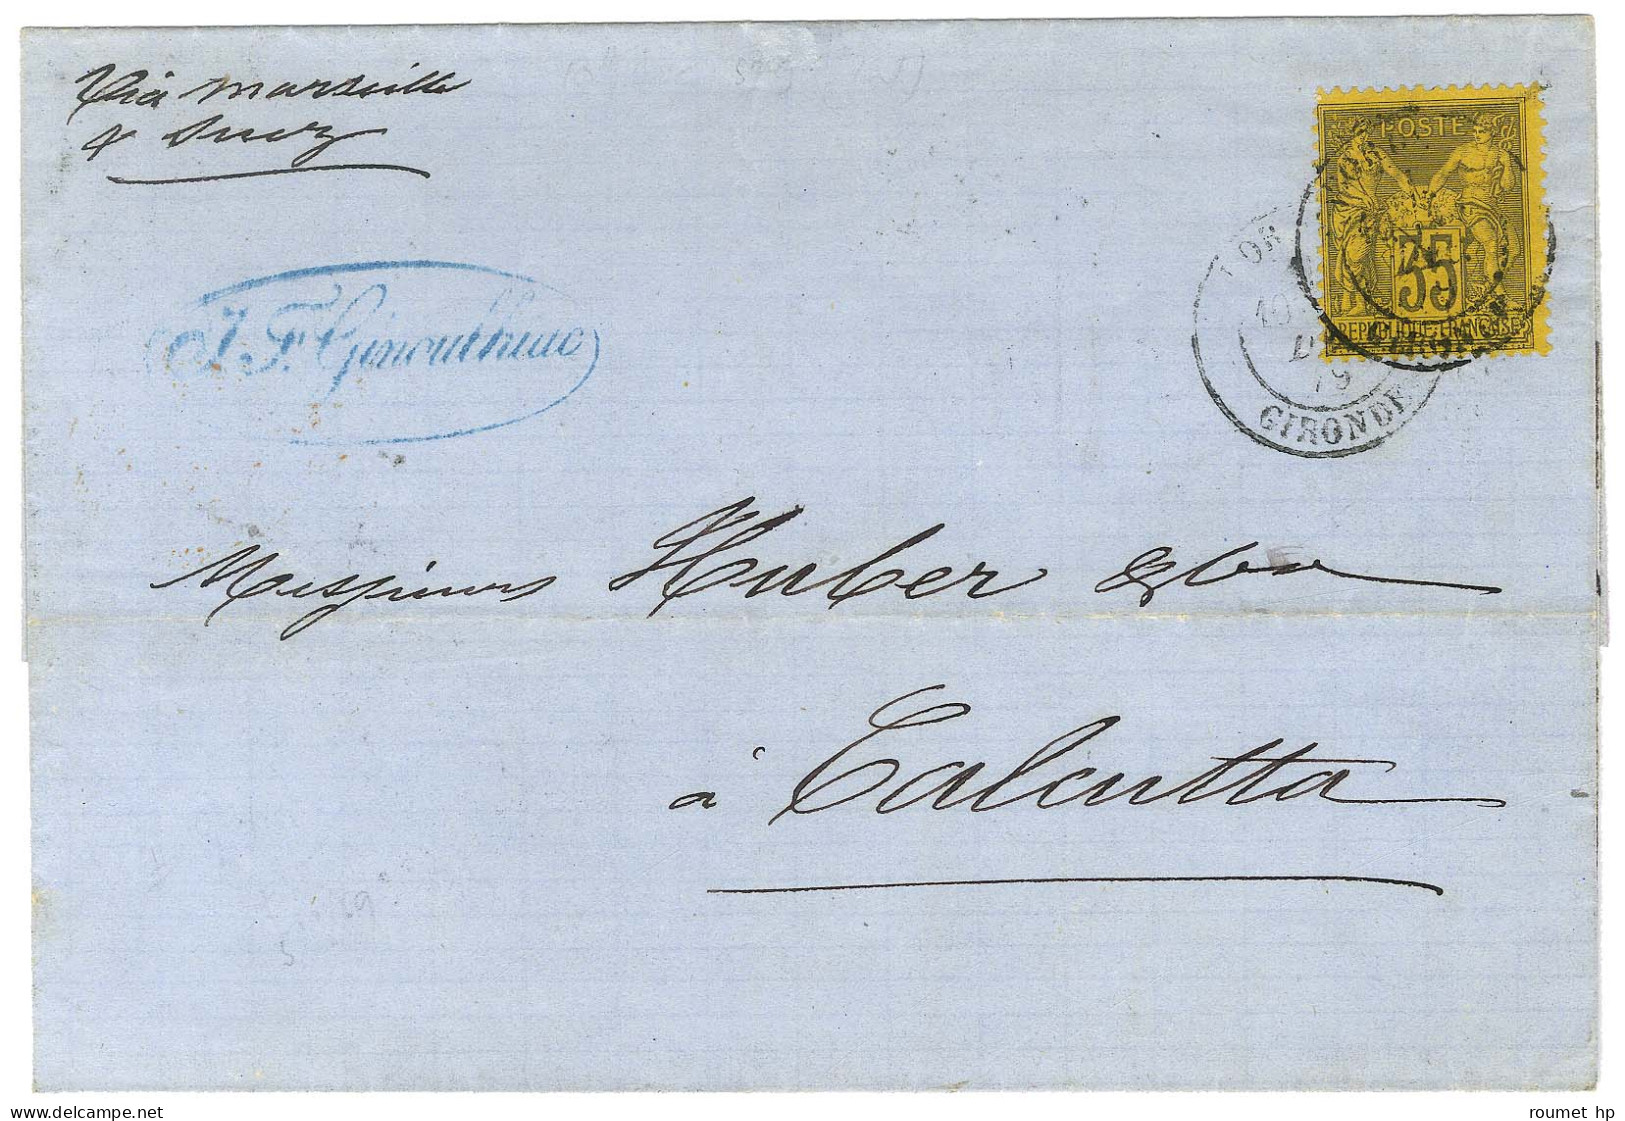 Via Marseille
& Suez
POSTE
35
REPUBLIQUE FRANCAISE
10
79
GIRONDE
J. F.
Messieurs Huber & Cie
à Calcutta
delcampe.net
roumet hp